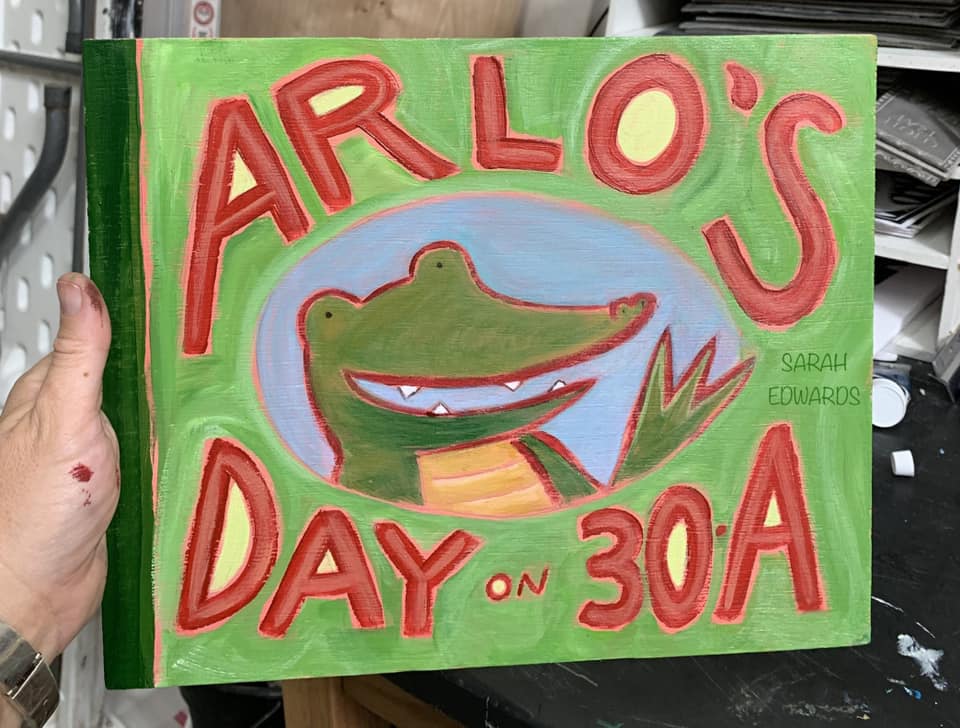 ARLO'S
SARAH
EDWARDS
DAY ON 30·A